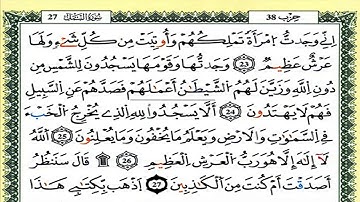 27 سُورَةُ النَّمْلِ حِزْب 38
اِنِّے وَجَدتُّ اُ۪مْرَأَةٗ تَمْلِكُهُمْ وَأُوتِيَتْ مِن كُلِّ شَےْءٖ وَلَهَا
عَرْشٌ عَظِيمٞ 23 وَجَدتُّهَا وَقَوْمَهَا يَسْجُدُونَ لِلشَّمْسِ مِن
دُونِ اِ۬للَّهِ وَزَيَّنَ لَهُمُ اُ۬لشَّيْطَٰنُ أَعْمَٰلَهُمْ فَصَدَّهُمْ عَنِ اِ۬لسَّبِيلِ
فَهُمْ لَا يَهْتَدُونَ 24 أَلَّا يَسْجُدُواْ لِلهِ اِ۬لذِے يُخْرِجُ اُ۬لْخَبْءَ
فِے اِ۬لسَّمَٰوَٰتِ وَالَارْضِ وَيَعْلَمُ مَا يُخْفُونَ وَمَا يُعْلِنُونَ 25 اَ۬للَّهُ
لَآ إِلَٰهَ إِلَّا هُوَ رَبُّ اُ۬لْعَرْشِ اِ۬لْعَظِيمِ 26 قَالَ سَنَنظُرُ
أَصَدَقْتَ أَمْ كُنتَ مِنَ اَ۬لْكَٰذِبِينَ 27 اَ۪ذْهَب بِّكِتَٰبِے هَٰذَا